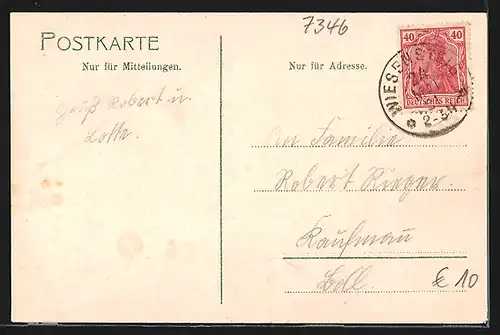 7346
POSTKARTE
Nur für Mitteilungen.
Nur für Adresse.
40 40
DEUTSCHES REICH
WIES
2-3N
Gruß Robert u.
Lotte.
An Familie
Robert Rieger.
Kaufmann
Boll.
€ 10